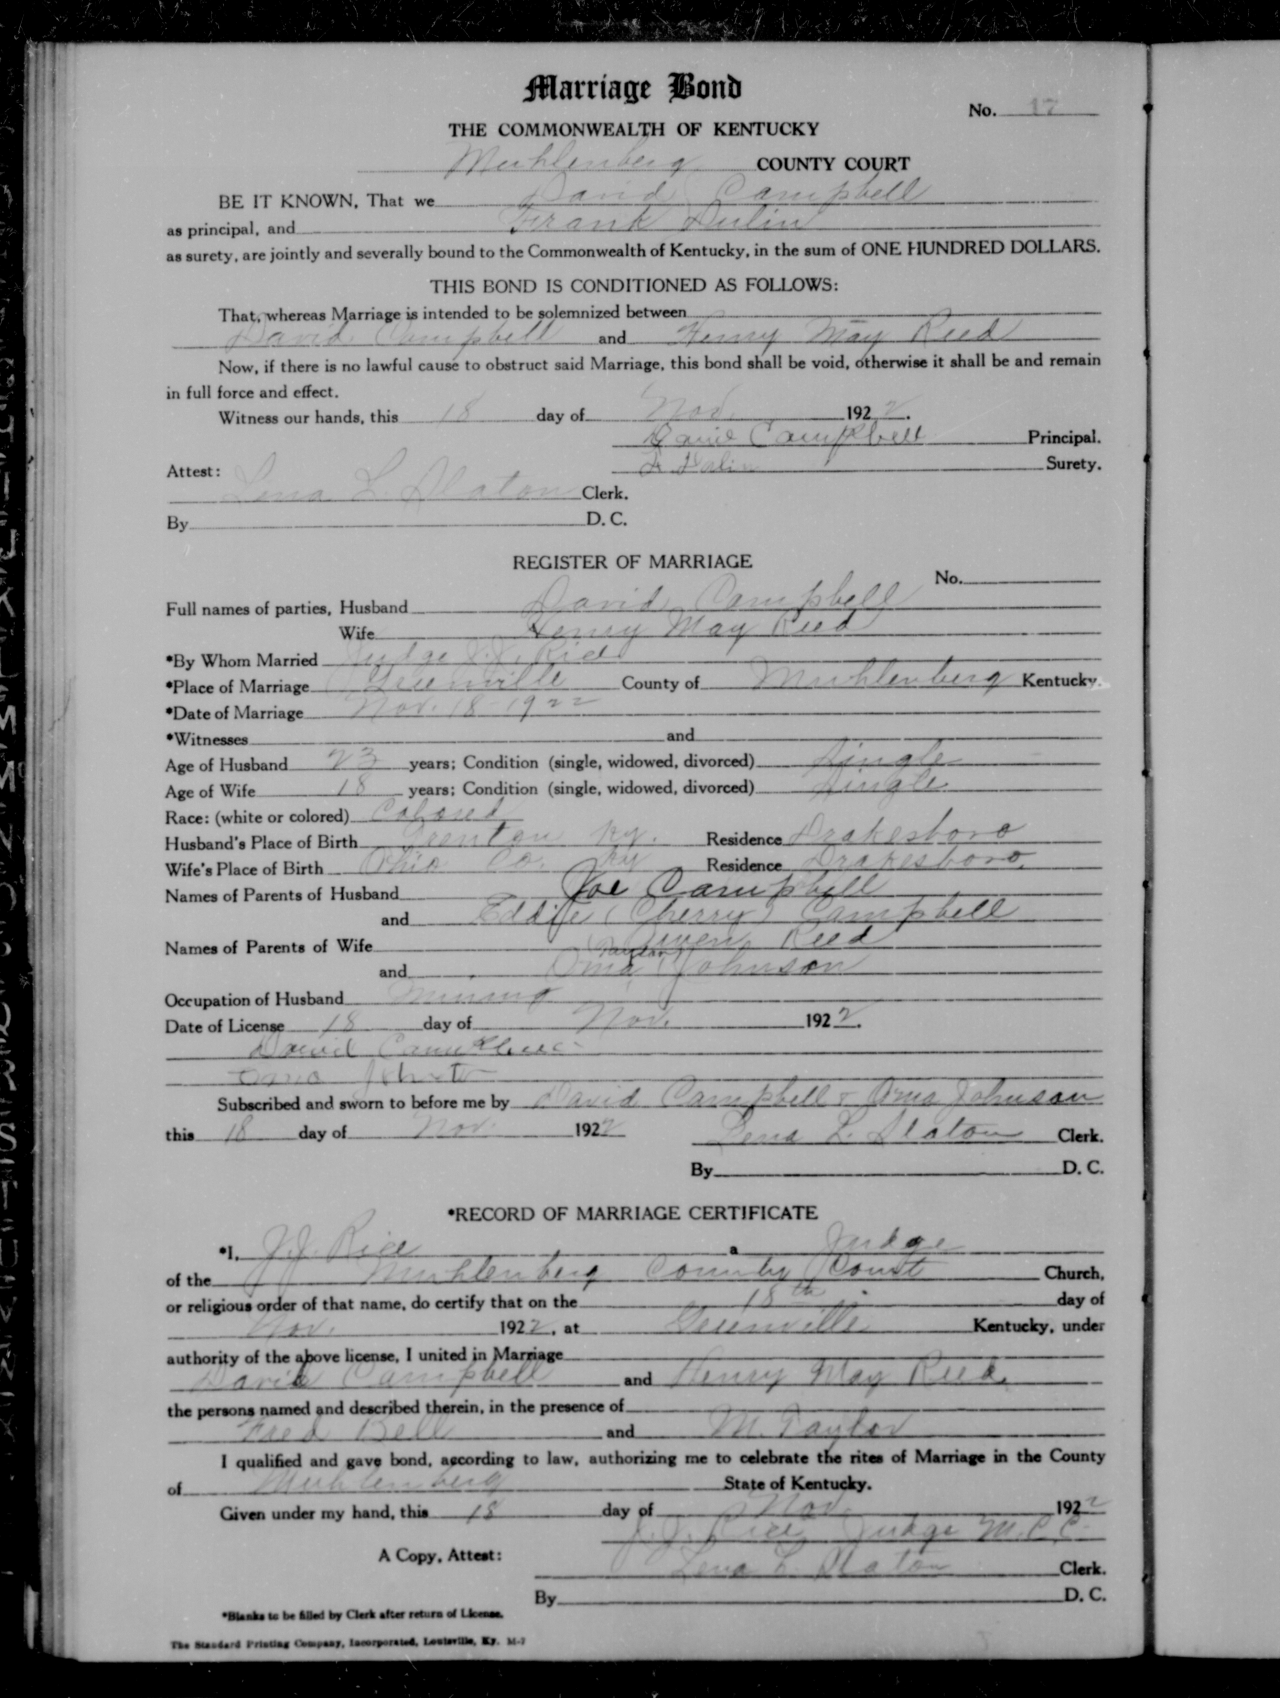 Marriage Bond
No. 17
THE COMMONWEALTH OF KENTUCKY
Muhlenberg COUNTY COURT
BE IT KNOWN, That we David Campbell
as principal, and Frank Dulin
as surety, are jointly and severally bound to the Commonwealth of Kentucky, in the sum of ONE HUNDRED DOLLARS.
THIS BOND IS CONDITIONED AS FOLLOWS:
That, whereas Marriage is intended to be solemnized between
David Campbell and Henry May Reed
Now, if there is no lawful cause to obstruct said Marriage, this bond shall be void, otherwise it shall be and remain
in full force and effect.
Witness our hands, this 18 day of Nov. 1922.
David Campbell Principal.
Attest: F Dulin Surety.
Lena L. Slaton Clerk.
By D. C.
REGISTER OF MARRIAGE
No.
Full names of parties, Husband David Campbell
Wife Henry May Reed
*By Whom Married Judge J. J. Rice
*Place of Marriage Greenville County of Muhlenberg Kentucky.
*Date of Marriage Nov. 18-1922
*Witnesses and
Age of Husband 23 years; Condition (single, widowed, divorced) Single
Age of Wife 18 years; Condition (single, widowed, divorced) Single
Race: (white or colored) Colored
Husband's Place of Birth Trenton Ky. Residence Drakesboro
Wife's Place of Birth Ohio Co. Ky Residence Drakesboro.
Names of Parents of Husband Joe Campbell
and Eddie (Cherry) Campbell
Names of Parents of Wife Owen Reed
and Oma (Taylor) Johnson
Occupation of Husband Mining
Date of License 18 day of Nov. 1922.
David Campbell
Oma
Subscribed and sworn to before me by David Campbell & Oma Johnson
this 18 day of Nov. 1922 Lena L. Slaton Clerk.
By D. C.
*RECORD OF MARRIAGE CERTIFICATE
*I, J. J. Rice a Judge
of the Muhlenberg County Court Church,
or religious order of that name, do certify that on the 18th day of
Nov. 1922, at Greenville Kentucky, under
authority of the above license, I united in Marriage
David Campbell and Henry May Reed.
the persons named and described therein, in the presence of
Fred Bell and M. Taylor
I qualified and gave bond, according to law, authorizing me to celebrate the rites of Marriage in the County
of Muhlenberg State of Kentucky.
Given under my hand, this 18 day of Nov. 1922
J. J. Rice Judge M. C. C.
A Copy, Attest: Lena L. Slaton Clerk.
By D. C.
*Blanks to be filled by Clerk after return of License.
The Standard Printing Company, Incorporated, Louisville, Ky. M-7